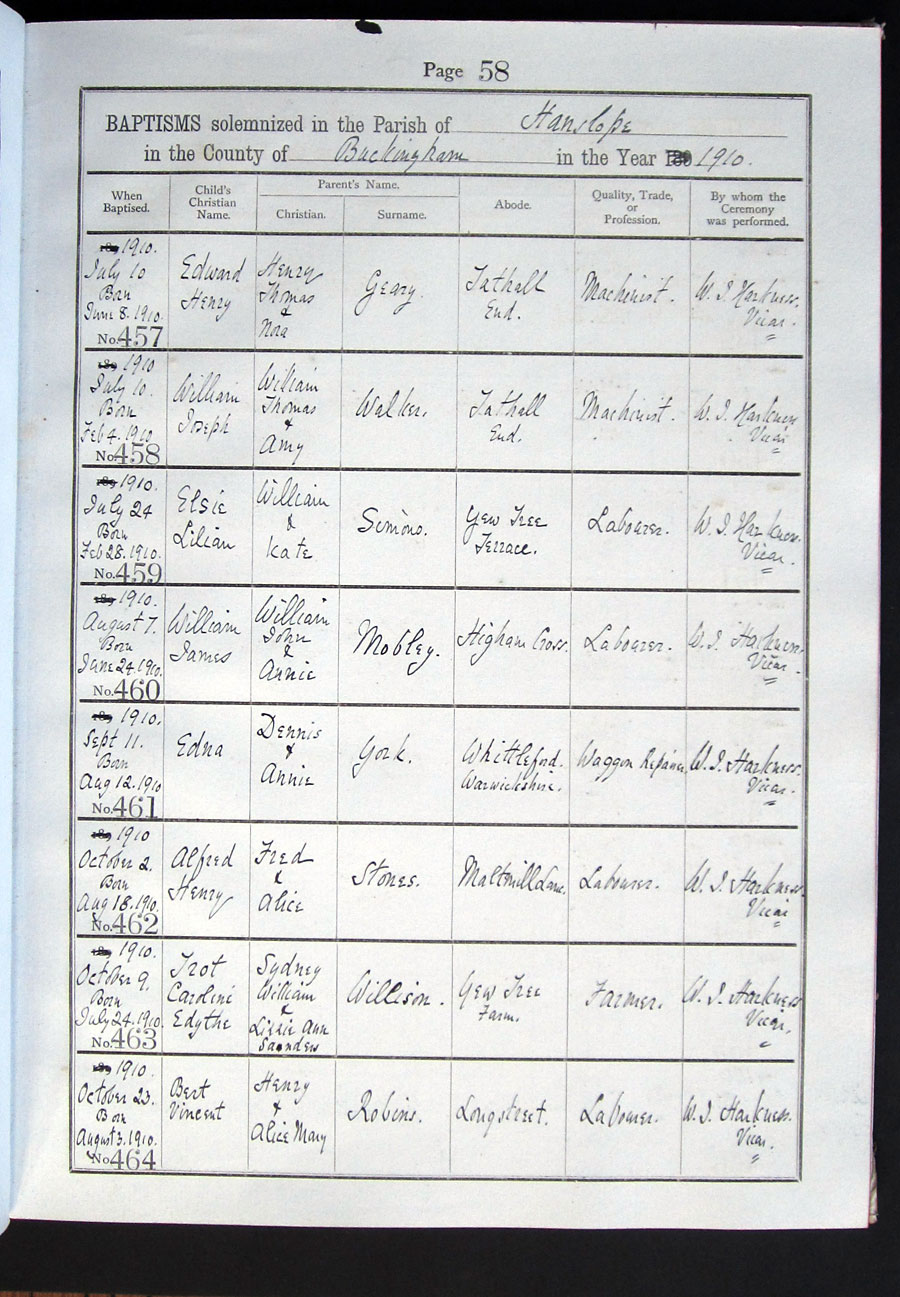 Page 58
BAPTISMS solemnized in the Parish of Hanslope
in the County of Buckingham in the Year 189 1910.
When Baptised.
Child's Christian Name.
Parent's Name.
Christian.
Surname.
Abode.
Quality, Trade, or Profession.
By whom the Ceremony was performed.
189 1910.
July 10
Born
June 8. 1910.
No. 457
Edward
Henry
Henry
Thomas
&
Nora
Geary.
Tathall
End.
Machinist.
W. J. Harkness.
Vicar.
189 1910
July 10.
Born
Feb 4. 1910
No. 458
William
Joseph
William
Thomas
&
Amy
Walker.
Tathall
End.
Machinist.
W. J. Harkness
Vicar
189 1910.
July 24
Born
Feb 28. 1910.
No. 459
Elsie
Lilian
William
&
Kate
Simons.
Yew Tree
Terrace.
Labourer.
W. J. Harkness.
Vicar.
189 1910.
August 7.
Born
June 24. 1910.
No. 460
William
James
William
John
&
Annie
Mobley.
Higham Cross.
Labourer.
W. J. Harkness.
Vicar.
189 1910.
Sept 11.
Born
Aug 12. 1910
No. 461
Edna
Dennis
&
Annie
York.
Whittleford.
Warwickshire.
Waggon Repairer
W. J. Harkness.
Vicar.
189 1910
October 2.
Born
Aug 18. 1910.
No. 462
Alfred
Henry
Fred
&
Alice
Stones.
Maltmill Lane.
Labourer.
W. J. Harkness.
Vicar
189 1910.
October 9.
Born
July 24. 1910.
No. 463
Trot
Caroline
Edythe
Sydney
William
&
Lizzie Ann
Saunders
Willison.
Yew Tree
Farm.
Farmer.
W. J. Harkness
Vicar.
189 1910.
October 23.
Born
August 3. 1910.
No. 464
Bert
Vincent
Henry
&
Alice Mary
Robins.
Longstreet.
Labourer.
W. J. Harkness.
Vicar.